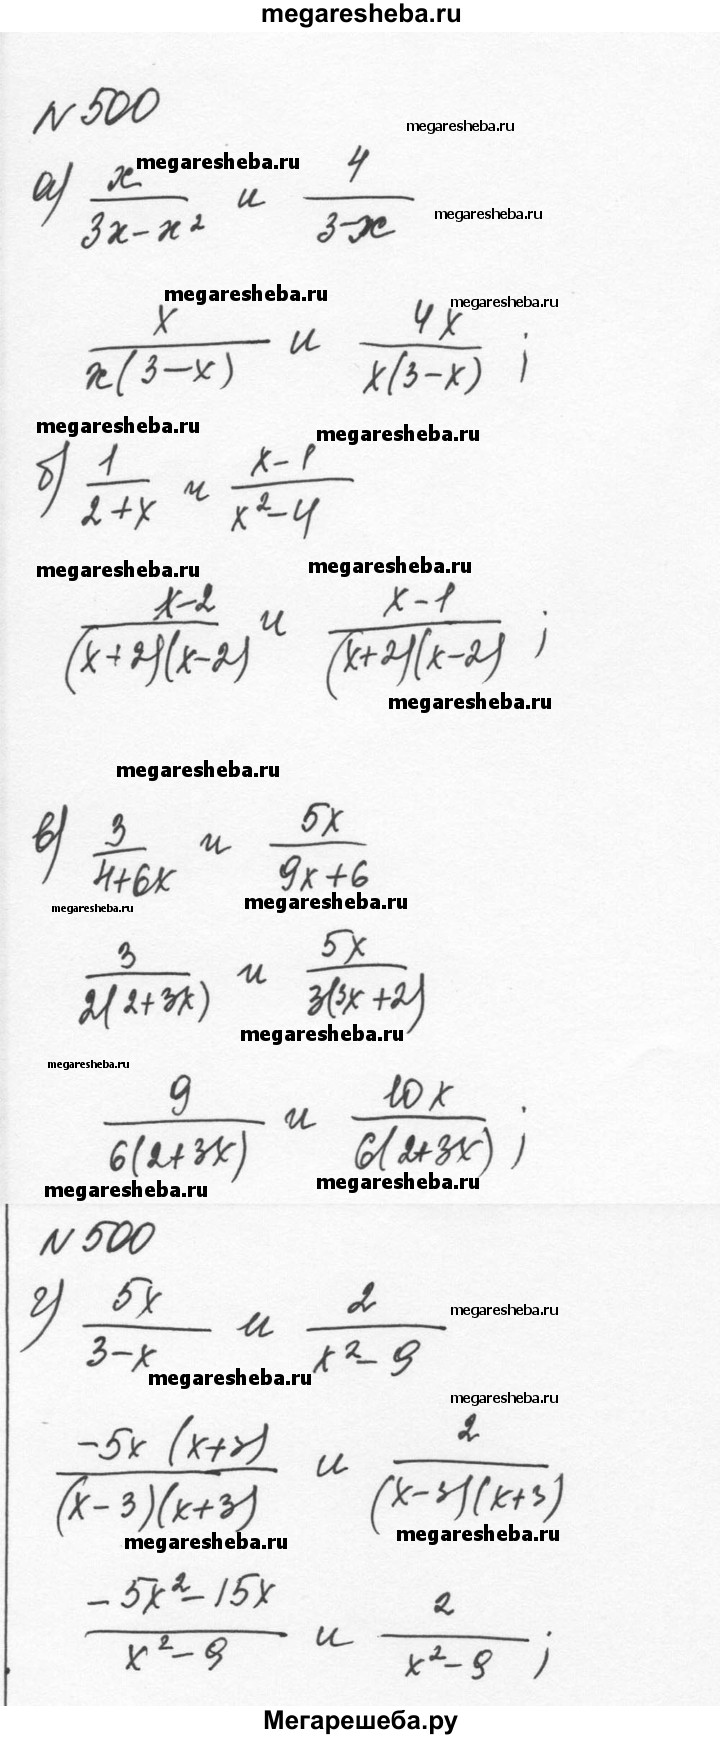 megaresheba.ru
N 500
megaresheba.ru
а) x/(3x-x²) и 4/(3-x)
megaresheba.ru
megaresheba.ru
megaresheba.ru
megaresheba.ru
x/(x(3-x)) и 4x/(x(3-x)) ;
megaresheba.ru
megaresheba.ru
б) 1/(2+x) и (x-1)/(x²-4)
megaresheba.ru
megaresheba.ru
(x-2)/((x+2)(x-2)) и (x-1)/((x+2)(x-2)) ;
megaresheba.ru
megaresheba.ru
в) 3/(4+6x) и 5x/(9x+6)
megaresheba.ru
megaresheba.ru
3/(2(2+3x)) и 5x/(3(3x+2))
megaresheba.ru
megaresheba.ru
9/(6(2+3x)) и 10x/(6(2+3x)) ;
megaresheba.ru
megaresheba.ru
N 500
г) 5x/(3-x) и 2/(x²-9)
megaresheba.ru
megaresheba.ru
megaresheba.ru
-5x (x+3)/((x-3)(x+3)) и 2/((x-3)(x+3))
megaresheba.ru
megaresheba.ru
(-5x²-15x)/(x²-9) и 2/(x²-9) ;
Мегарешеба.ру